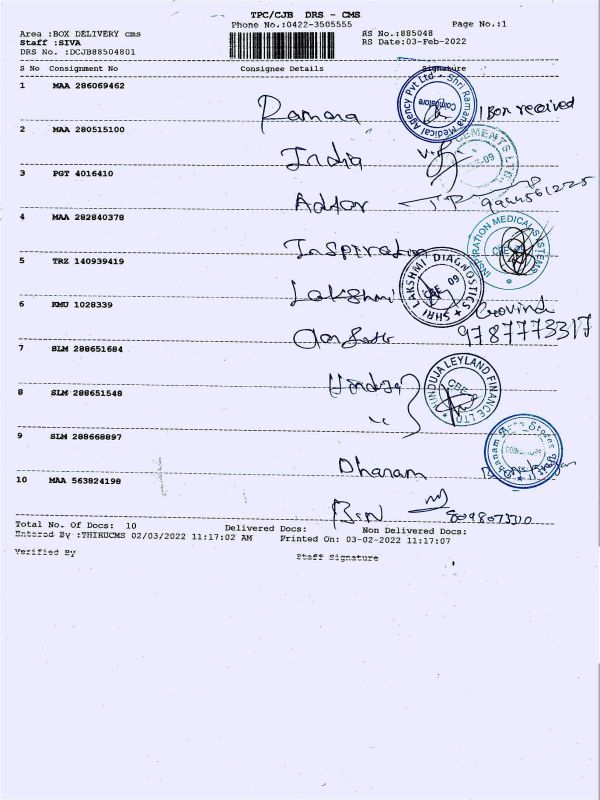 TPC/CJB DRS - CMS
Phone No.:0422-3505555
Page No.:1
Area :BOX DELIVERY cms
RS No.:885048
Staff :SIVA
RS Date:03-Feb-2022
DRS No. :DCJB88504801
S No Consignment No Consignee Details Signature
1 MAA 286069462
Ramana
Shri Ramana Medical Agency Pvt Ltd
Coimbatore
1 Box received
2 MAA 280515100
India
CEMENTS LTD
3 PGT 4016410
9944561225
4 MAA 282840378
Inspiration
INSPIRATION MEDICAL SYSTEMS
5 TRZ 140939419
Lakshmi
SHRI LAKSHMI DIAGNOSTICS
CBE 09
6 KMU 1028339
Govind
9787773317
7 SLM 288651684
Hinduja
HINDUJA LEYLAND FINANCE LTD
8 SLM 288651548
9 SLM 288668897
Dhanam
10 MAA 563824198
BSN
8098073310
Total No. Of Docs: 10 Delivered Docs: Non Delivered Docs:
Entered By :THIRUCMS 02/03/2022 11:17:02 AM Printed On: 03-02-2022 11:17:07
Verified By Staff Signature